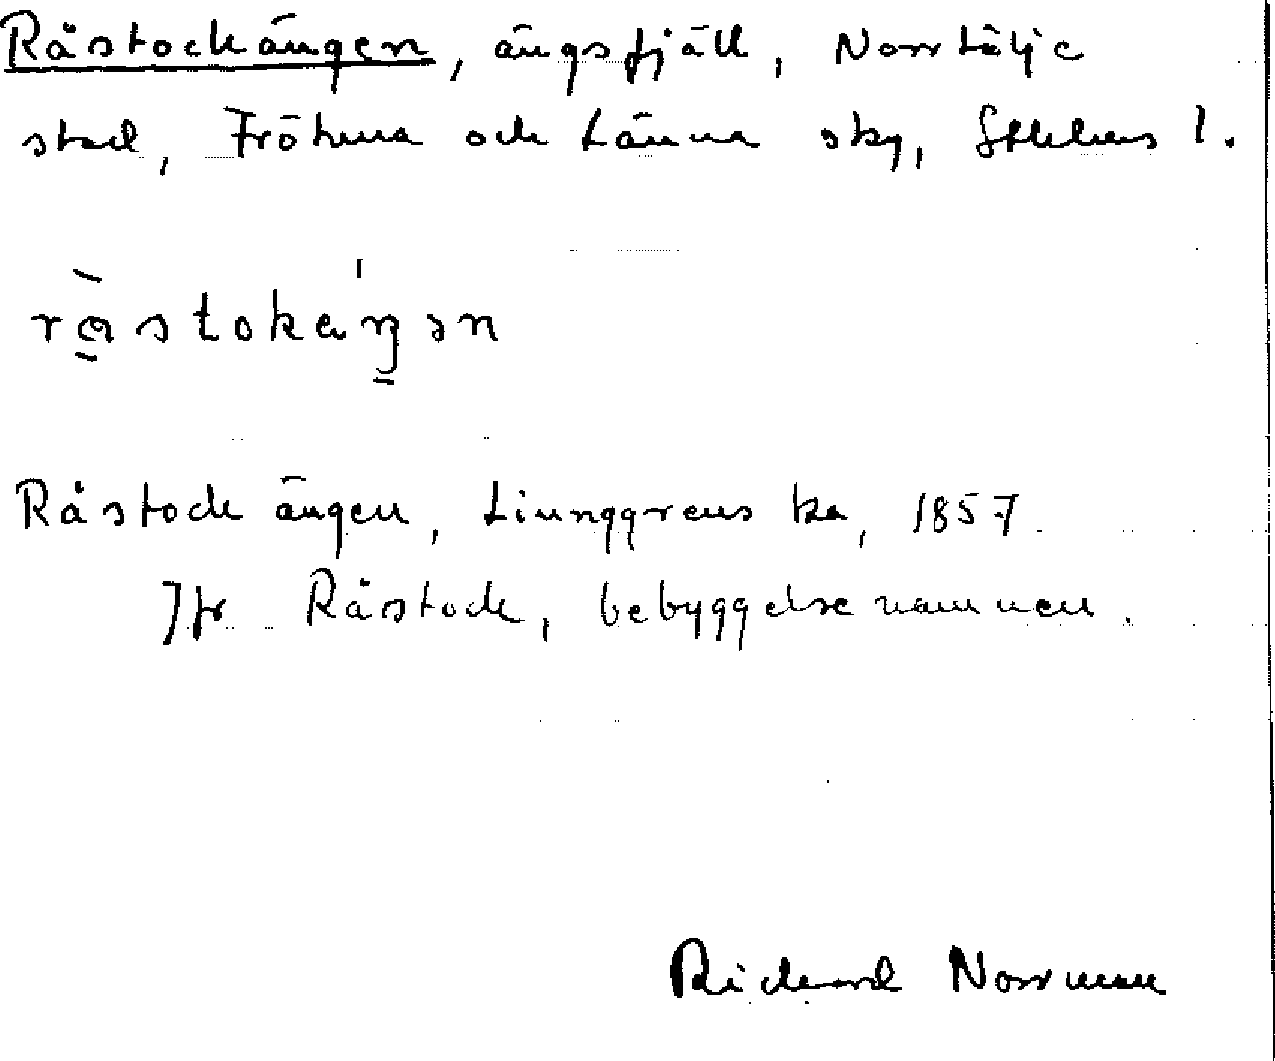 Råstockängen, ängsfjäll, Norrtälje
stad, Frötuna och Länna sky, Sthlms l.
råstokäŋən
Råstock ängen, Ljunggrens ka, 1857.
Jfr Råstock, bebyggelsenamnen.
Richard Norrman